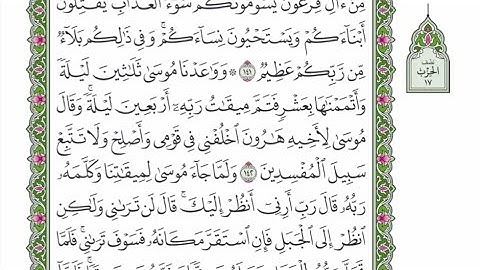 مِّنْ ءَالِ فِرْعَوْنَ يَسُومُونَكُمْ سُوٓءَ ٱلْعَذَابِ يُقَتِّلُونَ
أَبْنَآءَكُمْ وَيَسْتَحْيُونَ نِسَآءَكُمْ ۚ وَفِى ذَٰلِكُم بَلَآءٌ
مِّن رَّبِّكُمْ عَظِيمٌ ١٤١ ۞ وَوَٰعَدْنَا مُوسَىٰ ثَلَٰثِينَ لَيْلَةً
وَأَتْمَمْنَٰهَا بِعَشْرٍ فَتَمَّ مِيقَٰتُ رَبِّهِۦٓ أَرْبَعِينَ لَيْلَةً ۚ وَقَالَ
مُوسَىٰ لِأَخِيهِ هَٰرُونَ ٱخْلُفْنِى فِى قَوْمِى وَأَصْلِحْ وَلَا تَتَّبِعْ
سَبِيلَ ٱلْمُفْسِدِينَ ١٤٢ وَلَمَّا جَآءَ مُوسَىٰ لِمِيقَٰتِنَا وَكَلَّمَهُۥ
رَبُّهُۥ قَالَ رَبِّ أَرِنِىٓ أَنظُرْ إِلَيْكَ ۚ قَالَ لَن تَرَىٰنِى وَلَٰكِنِ
ٱنظُرْ إِلَى ٱلْجَبَلِ فَإِنِ ٱسْتَقَرَّ مَكَانَهُۥ فَسَوْفَ تَرَىٰنِى ۚ فَلَمَّا
نِصْفُ
ٱلْحِزْبِ
١٧